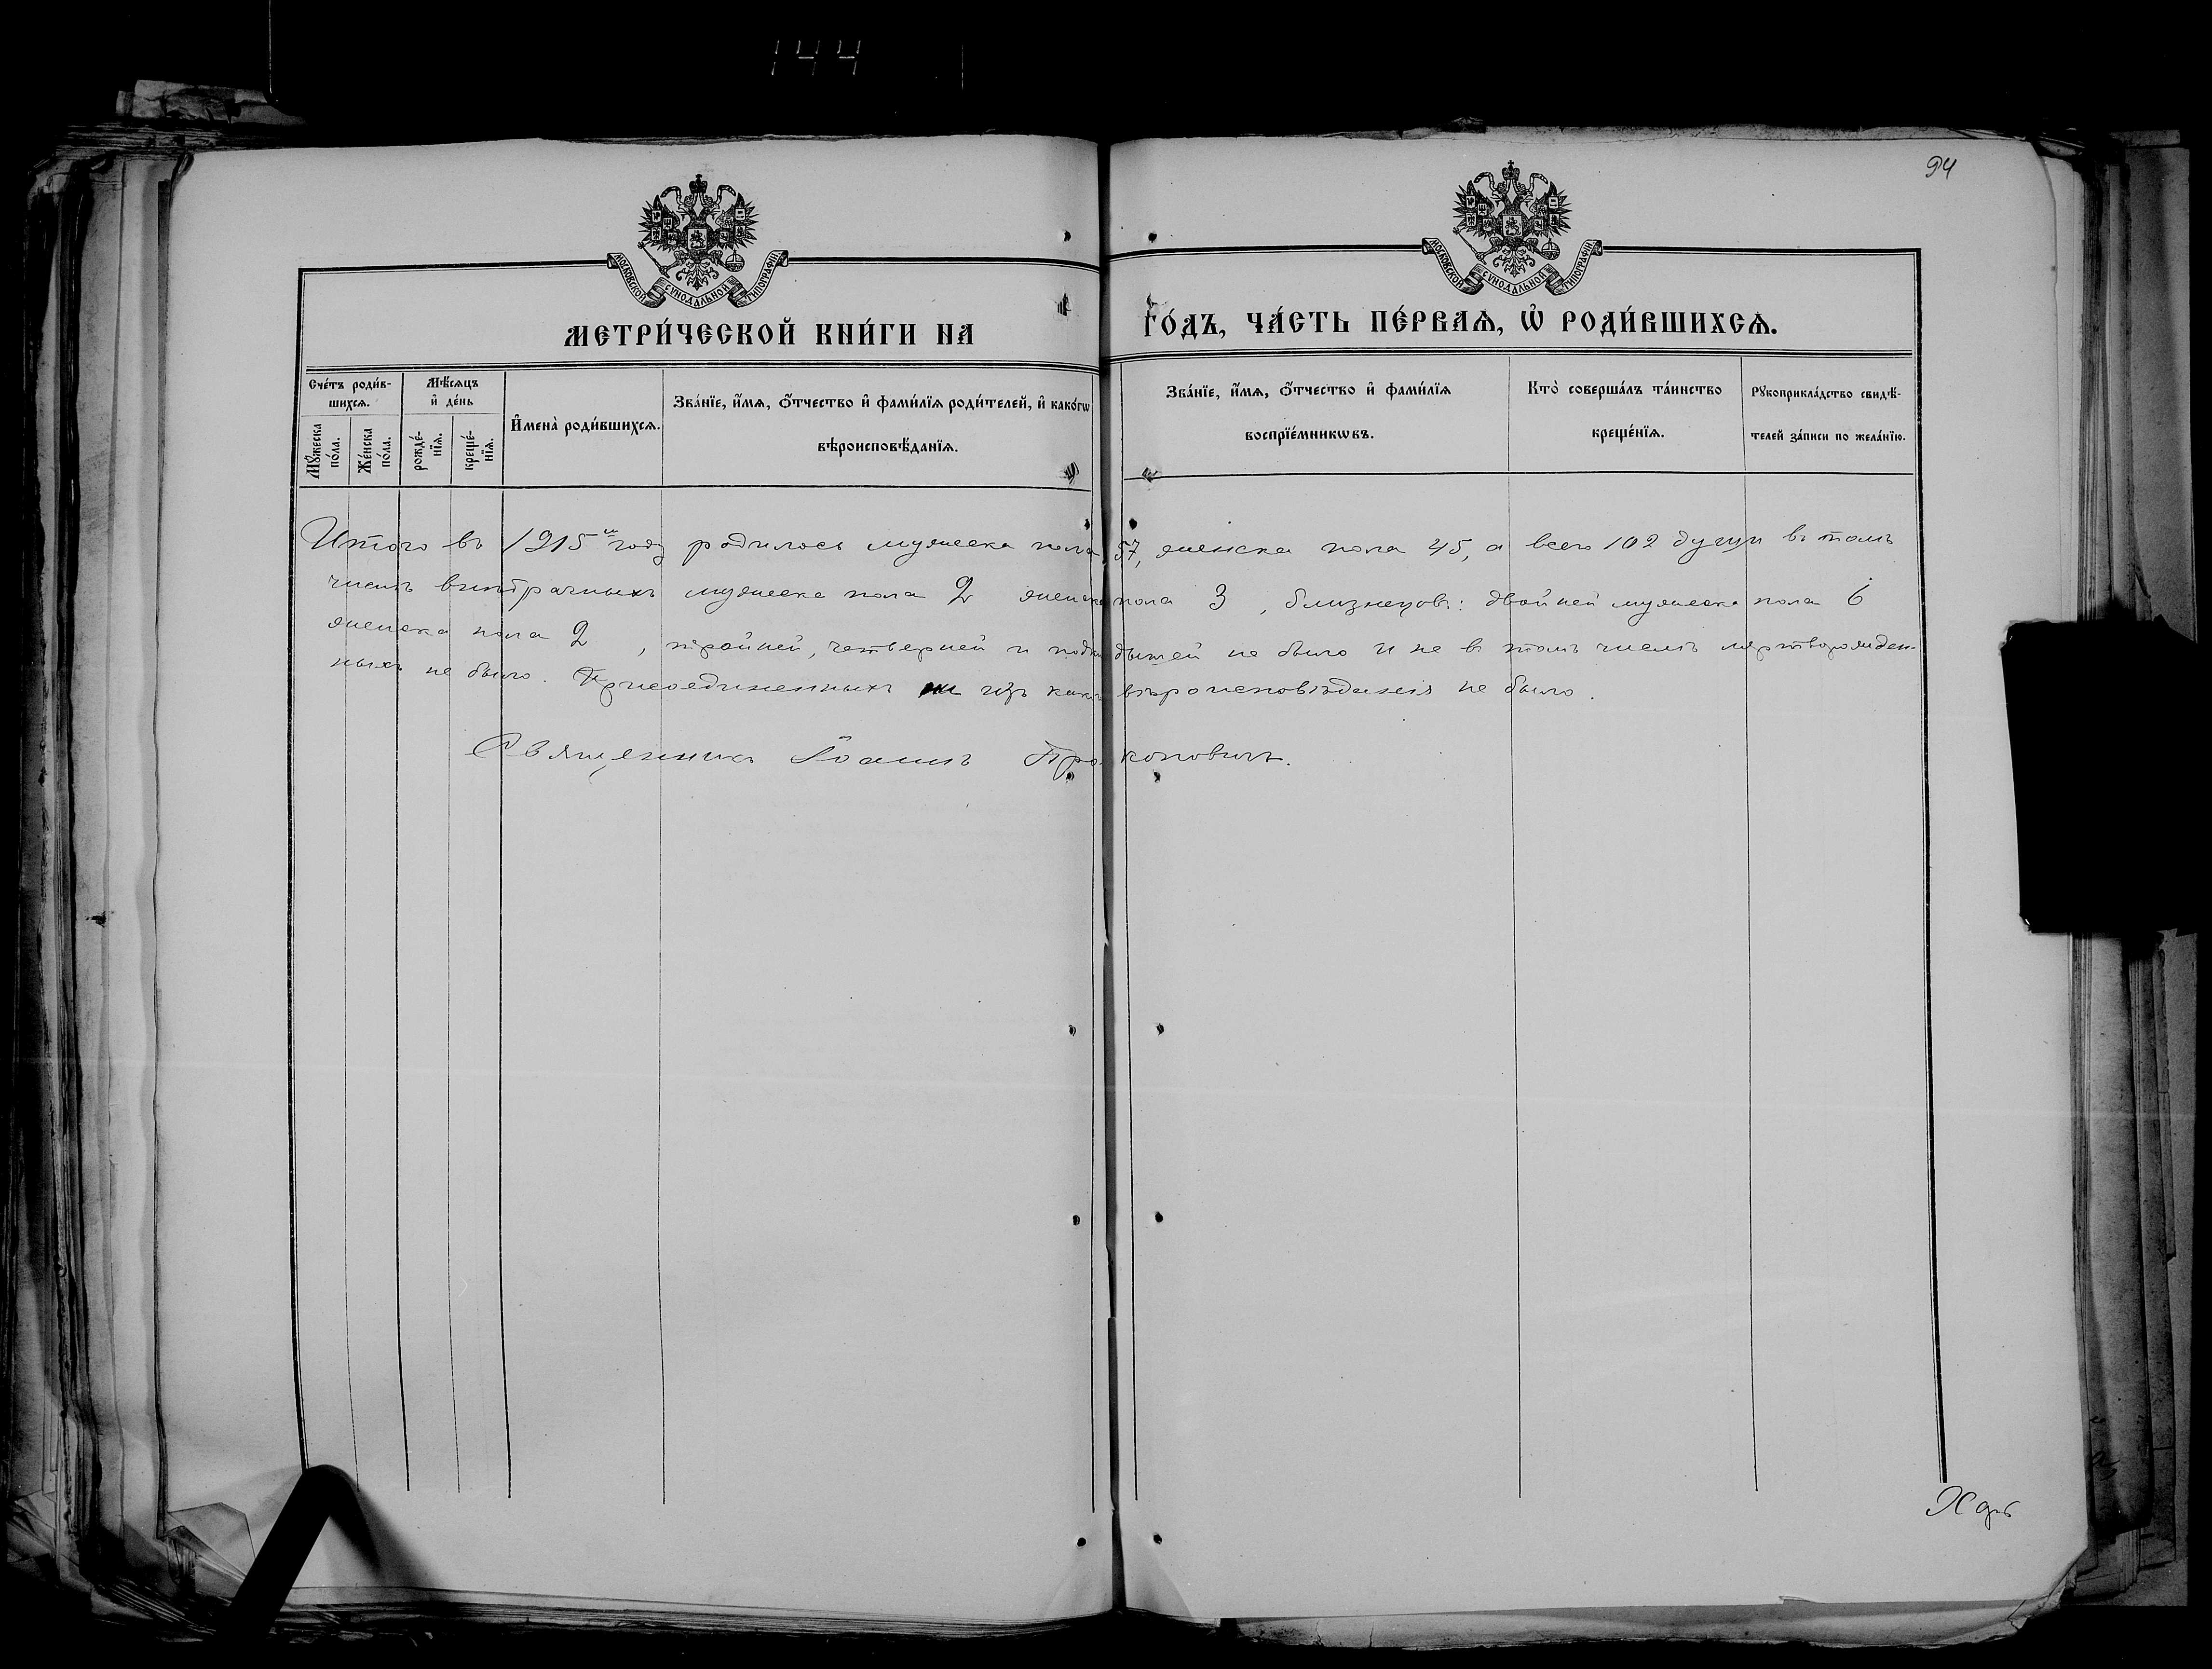 144
94
МОСКОВСКОЙ СѴНОДАЛЬНОЙ ТИПОГРАФІИ
МОСКОВСКОЙ СѴНОДАЛЬНОЙ ТИПОГРАФІИ
МЕТРИ́ЧЕСКОЙ КНИ́ГИ НА ГО́ДЪ, ЧА́СТЬ ПЕ́РВАѦ, Ѽ РОДИ́ВШИХСѦ.
Сче́тъ роди́в-
шихсѧ.
Мꙋ́жеска по́ла.
Же́нска по́ла.
Мѣ́сѧцъ
и҆ де́нь
рожде́-нїѧ.
креще́-нїѧ.
И҆мена̀ роди́вшихсѧ.
Зва́нїе, и҆́мѧ, ѻ҆́тчество и҆ фами́лїѧ роди́телей, и҆ како́гѡ
вѣроисповѣ́данїѧ.
Зва́нїе, и҆́мѧ, ѻ҆́тчество и҆ фами́лїѧ
воспрїе́мникѡвъ.
Кто̀ соверша́лъ та́инство
креще́нїѧ.
Рꙋкоприкла́дство свидѣ́-
телей за́писи по жела́нїю.
Итого въ 1915 м году родилось мужеска пола 57, женска пола 45, а всего 102 души въ томъ
числѣ внѣбрачныхъ мужеска пола 2 женска пола 3, близнецовъ: двойней мужеска пола 6
женска пола 2, тройней, четверней и подкидышей не было и не въ томъ числѣ мертворожден-
ныхъ не было. Присоединенныхъ изъ вѣроисповѣданія не было.
Священникъ Іоаннъ Прокоповичъ.